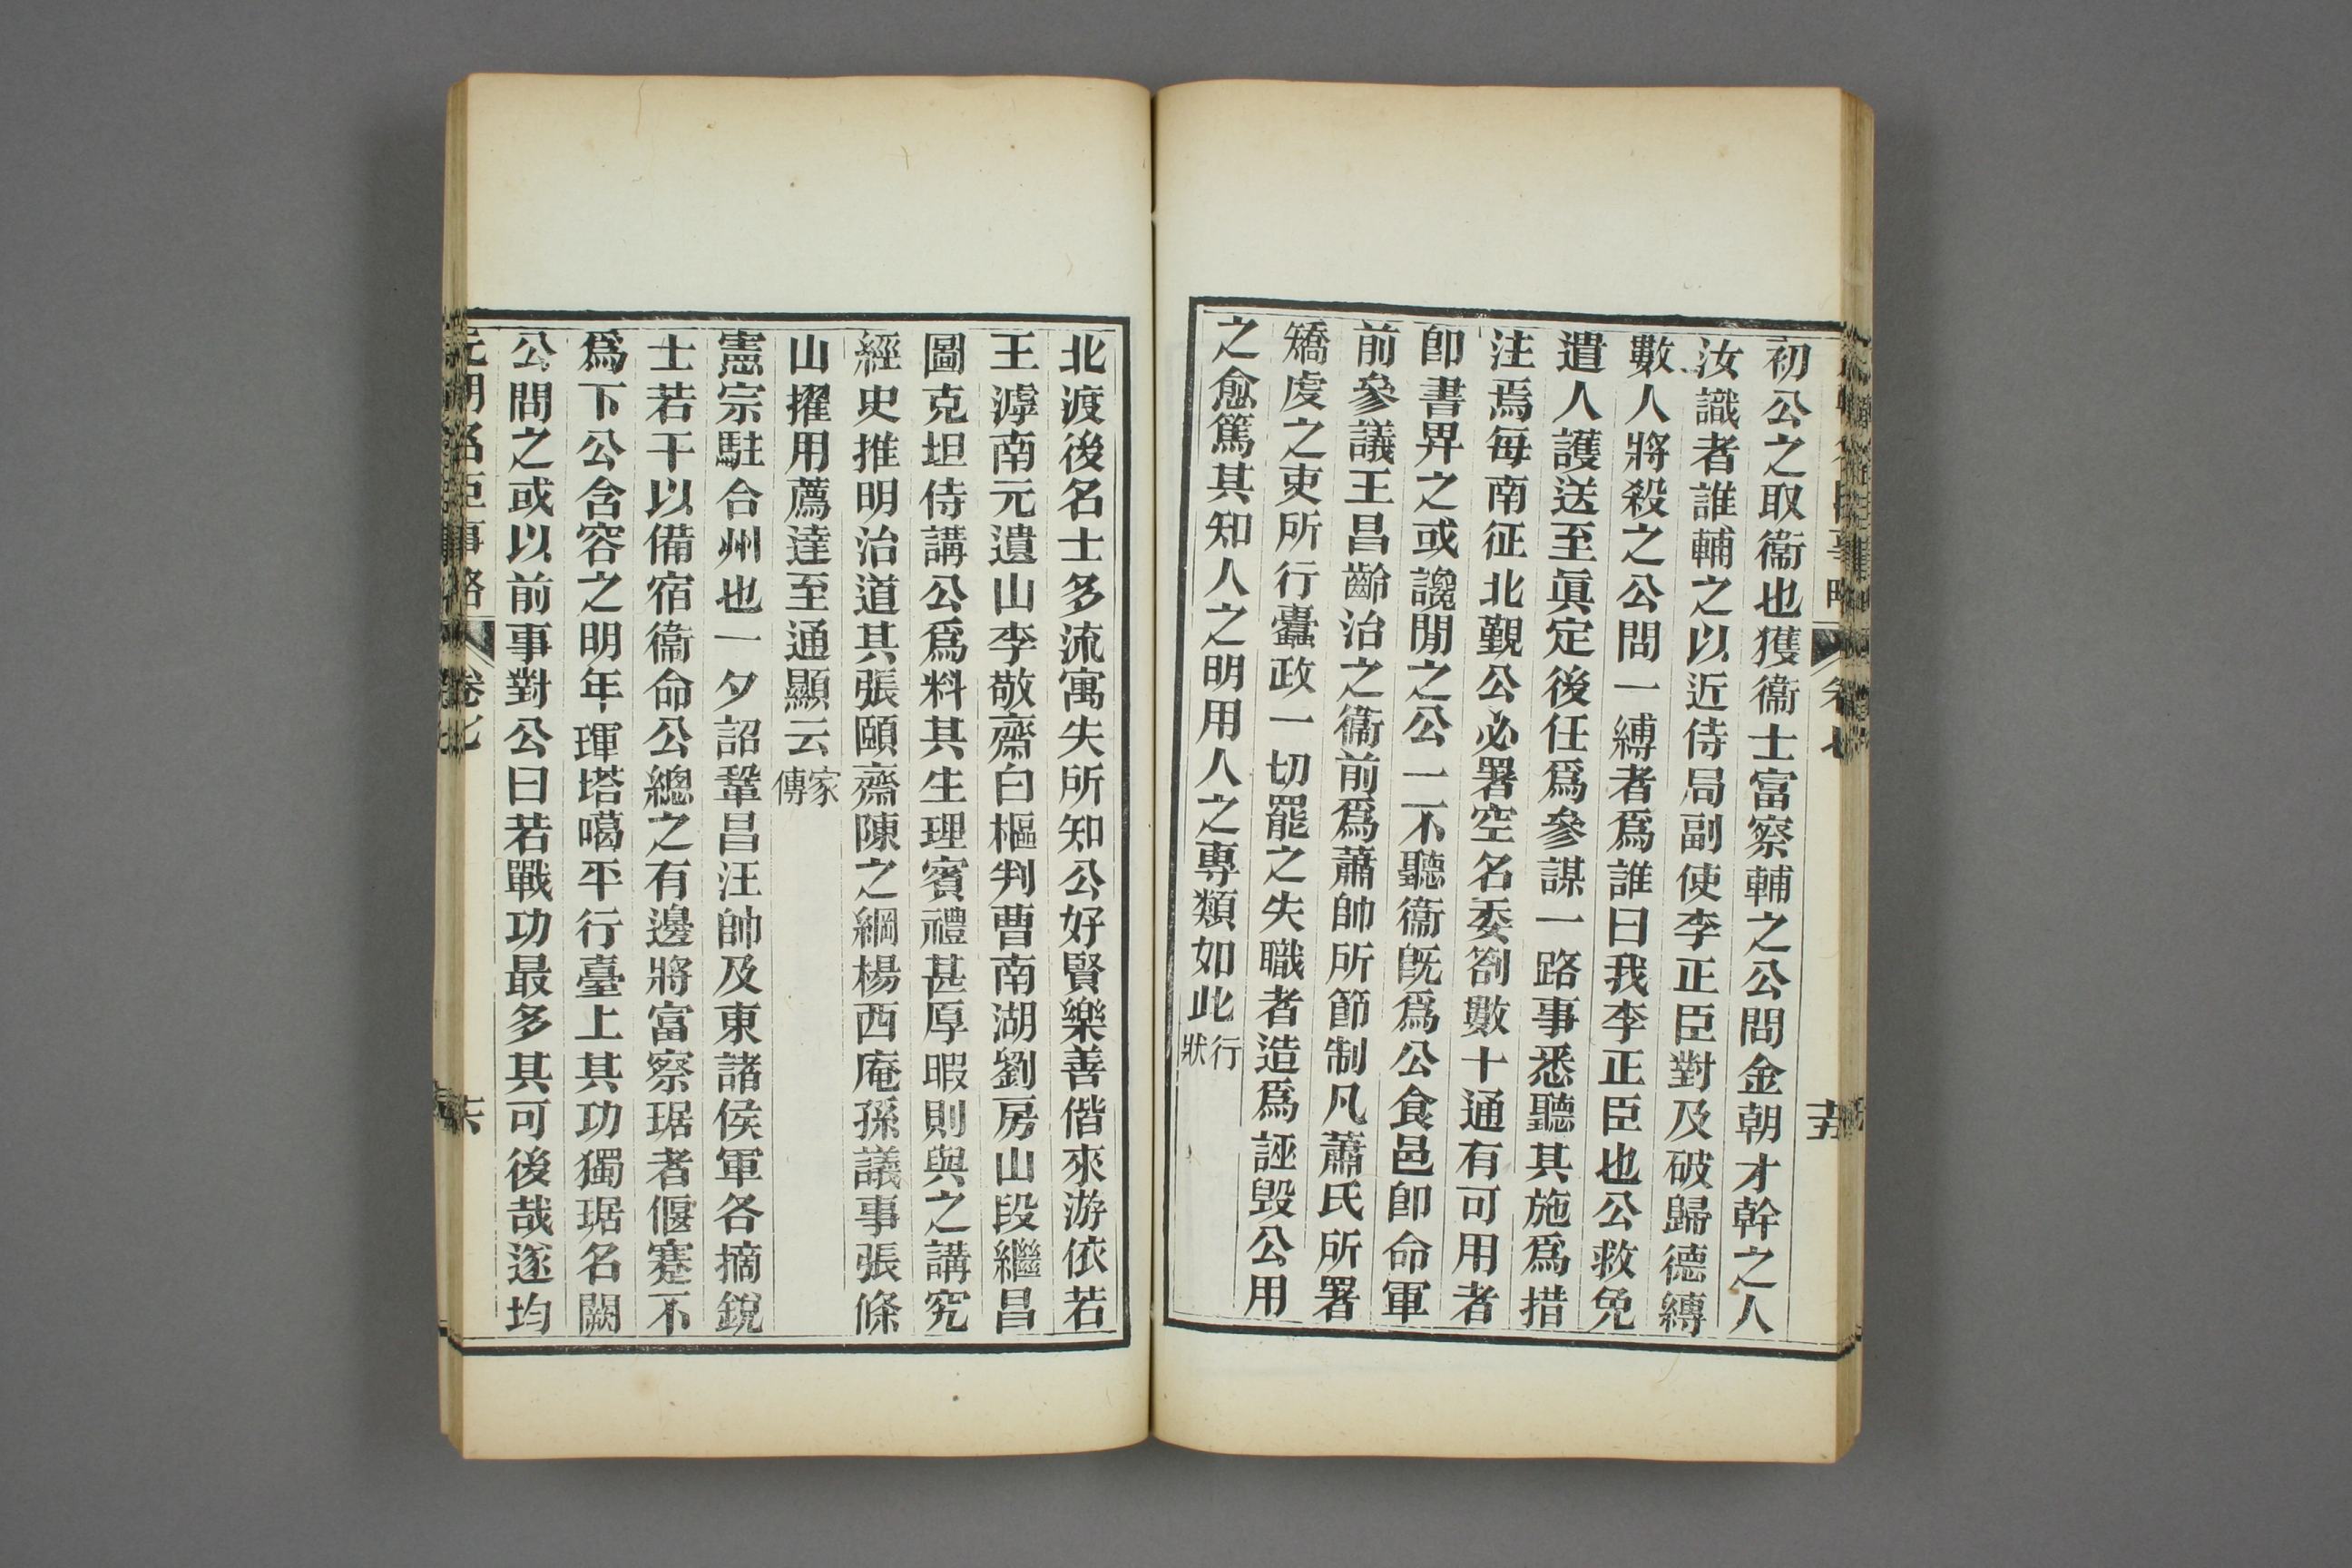 初公之取衞也獲衞士富察輔之公問金朝才幹之人
汝識者誰輔之以近侍局副使李正臣對及破歸德縛
數人將殺之公問一縛者爲誰曰我李正臣也公救免
遣人護送至眞定後任爲參謀一路事悉聽其施爲措
注焉每南征北覲公必署空名委劄數十通有可用者
卽書畀之或讒閒之公一不聽衞旣爲公食邑卽命軍
前參議王昌齡治之衞前爲蕭帥所節制凡蕭氏所署
矯虔之吏所行蠧政一切罷之失職者造爲誣毀公用
之愈篤其知人之明用人之專類如此行狀
北渡後名士多流寓失所知公好賢樂善偕來游依若
王滹南元遺山李敬齋白樞判曹南湖劉房山段繼昌
圖克坦侍講公爲料其生理賓禮甚厚暇則與之講究
經史推明治道其張頤齋陳之綱楊西庵孫議事張條
山擢用薦達至通顯云家傳
憲宗駐合州也一夕詔鞏昌汪帥及東諸侯軍各摘銳
士若干以備宿衞命公總之有邊將富察琚者偃蹇不
爲下公含容之明年琿塔噶平行臺上其功獨琚名闕
公問之或以前事對公曰若戰功最多其可後哉遂均
元朝名臣事略
卷七